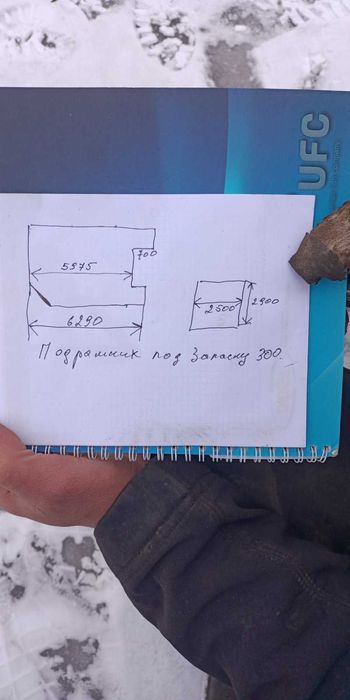 UFC
700
5575
2500
2900
6290
Подрамник под Запаску 300.